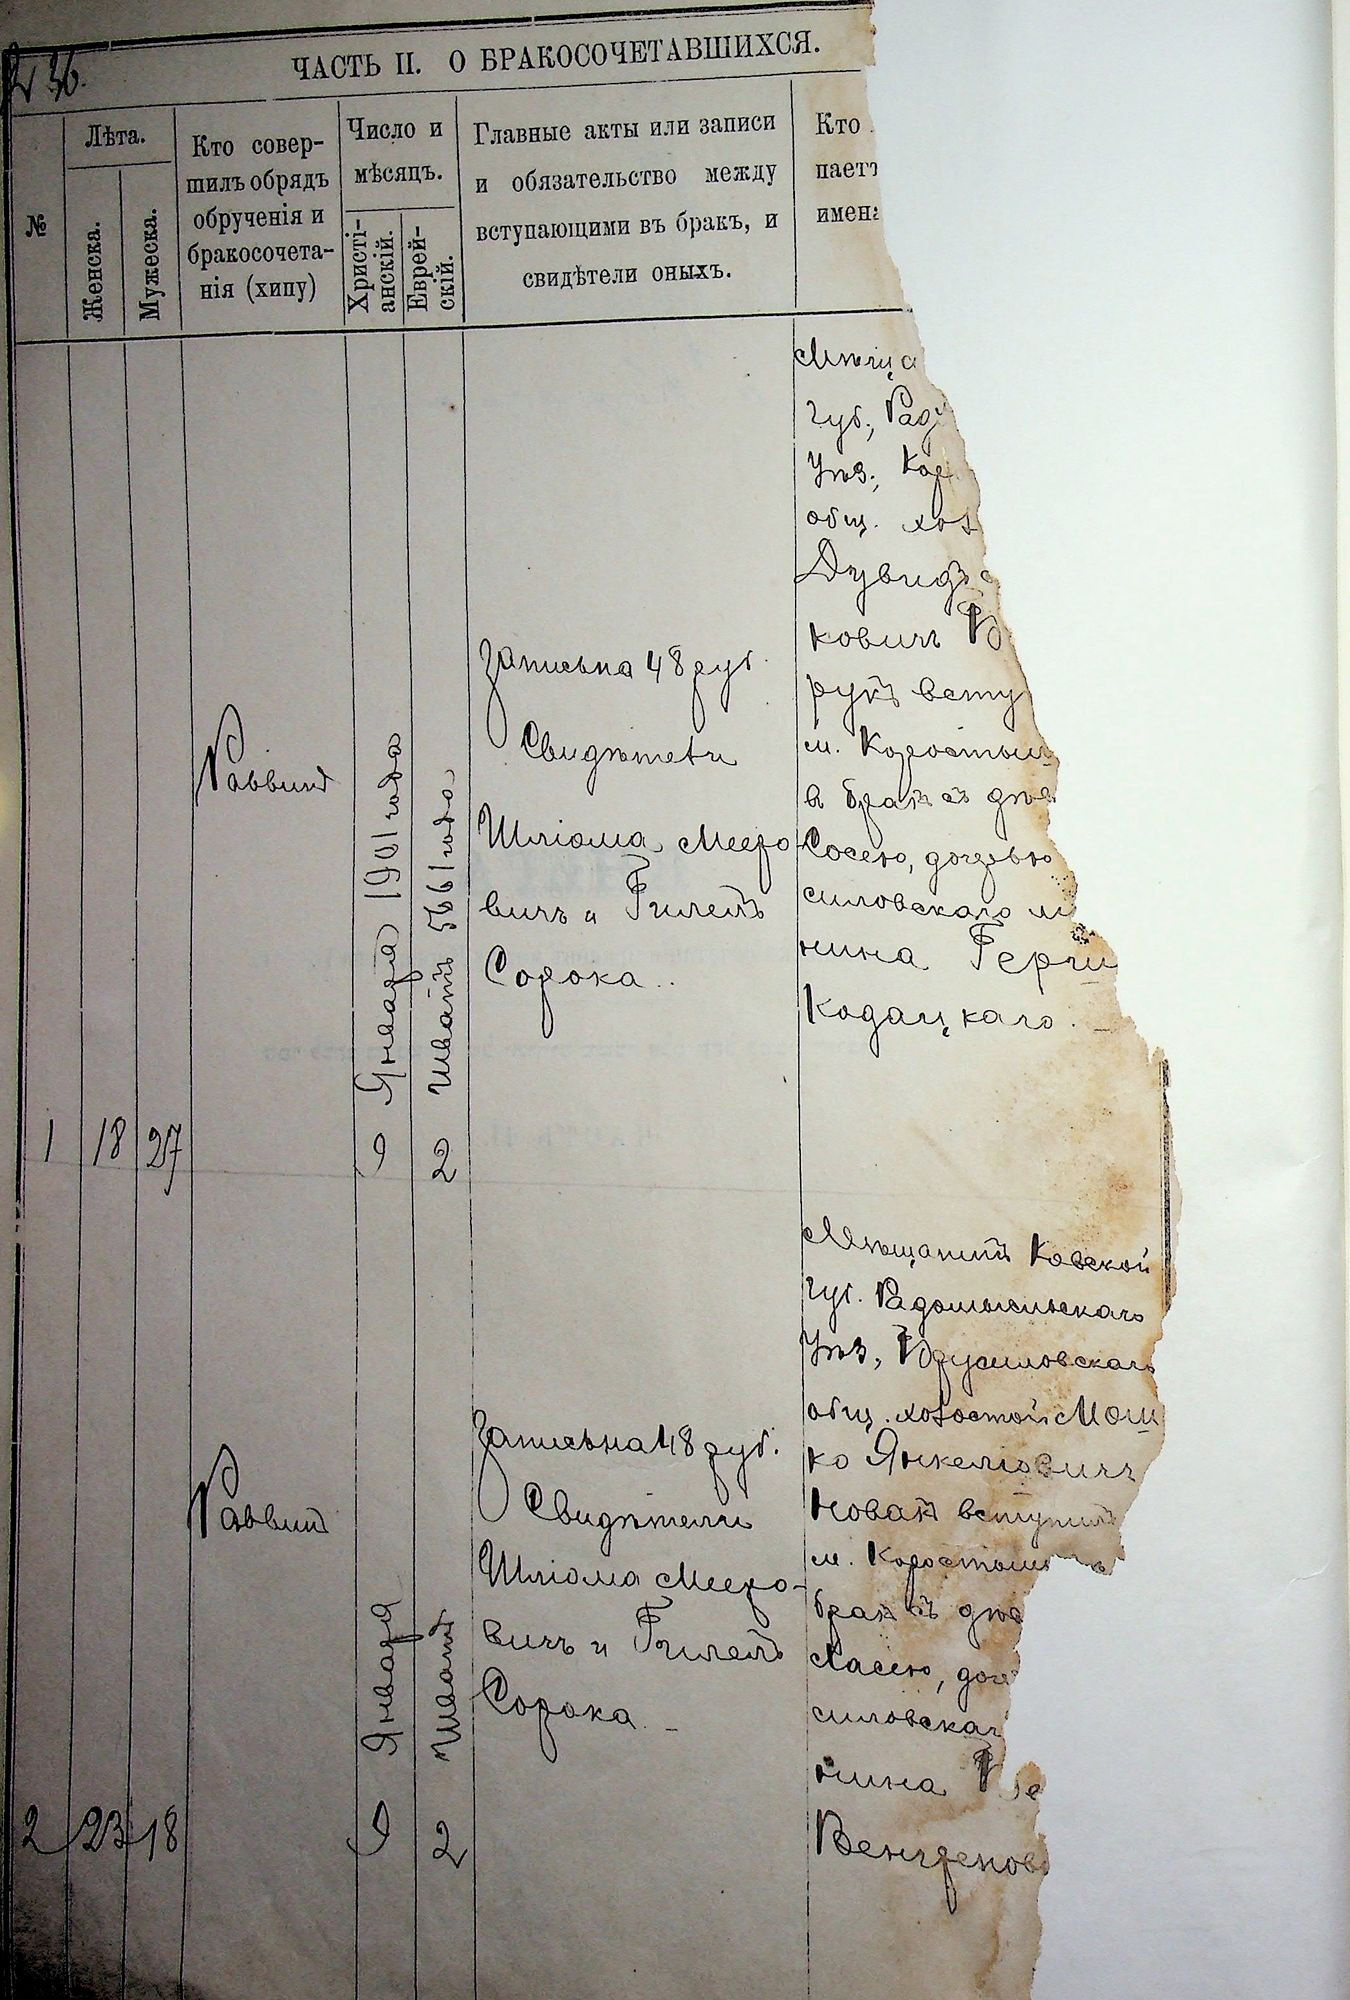 36.
ЧАСТЬ II. О БРАКОСОЧЕТАВШИХСЯ.
№
Лѣта.
Женска.
Мужеска.
Кто совер-
шилъ обрядъ
обрученія и
бракосочета-
нія (хипу)
Число и
мѣсяцъ.
Христі-
анскій.
Еврей-
скій.
Главные акты или записи
и обязательство между
вступающими въ бракъ, и
свидѣтели оныхъ.
Кто
паетъ
имена
1
18
27
Раввинъ
9 Января 1901 года
2 Шватъ 5661 года
Записьна 48 руб.
Свидѣтели
Шліома Мееро-
вичъ и Гилелъ
Сорока..
Мѣща
губ., Рад
Уѣз., Кор
общ. хол
Дувидъ
ковичъ Б
рукъ всту
м. Коростыш
в бракъ съ дѣв
Сосею, дочерью
силовскаго м
нина Герш
Кодацкаго.
2
23
18
Раввинъ
9 Января
2 Шватъ
Записьна 48 руб.
Свидѣтели
Шліома Мееро-
вичъ и Гилелъ
Сорока.
Мѣщанинъ Кевской
губ. Радомысльскаго
Уѣз., Брусиловскаго
общ. холостой Мош
ко Янкеліовичъ
Новакъ вступилъ
м. Коростыш
бракъ съ дѣв
Хасею, доч
силовскаг
нина
Венгренов